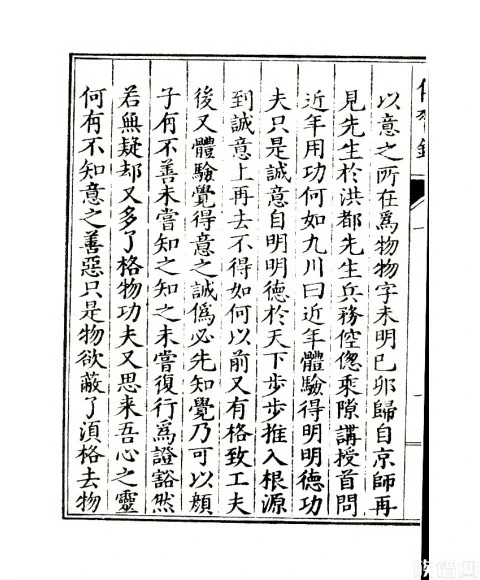 以意之所在爲物物字未明已卯歸自京師再
見先生於洪都先生兵務倥偬乘隙講授首問
近年用功何如九川曰近年體驗得明明德功
夫只是誠意自明明德於天下步步推入根源
到誠意上再去不得如何以前又有格致工夫
後又體驗覺得意之誠僞必先知覺乃可以顔
子有不善未嘗知之知之未嘗復行爲證豁然
若無疑却又多了格物功夫又思来吾心之靈
何有不知意之善惡只是物欲蔽了湏格去物